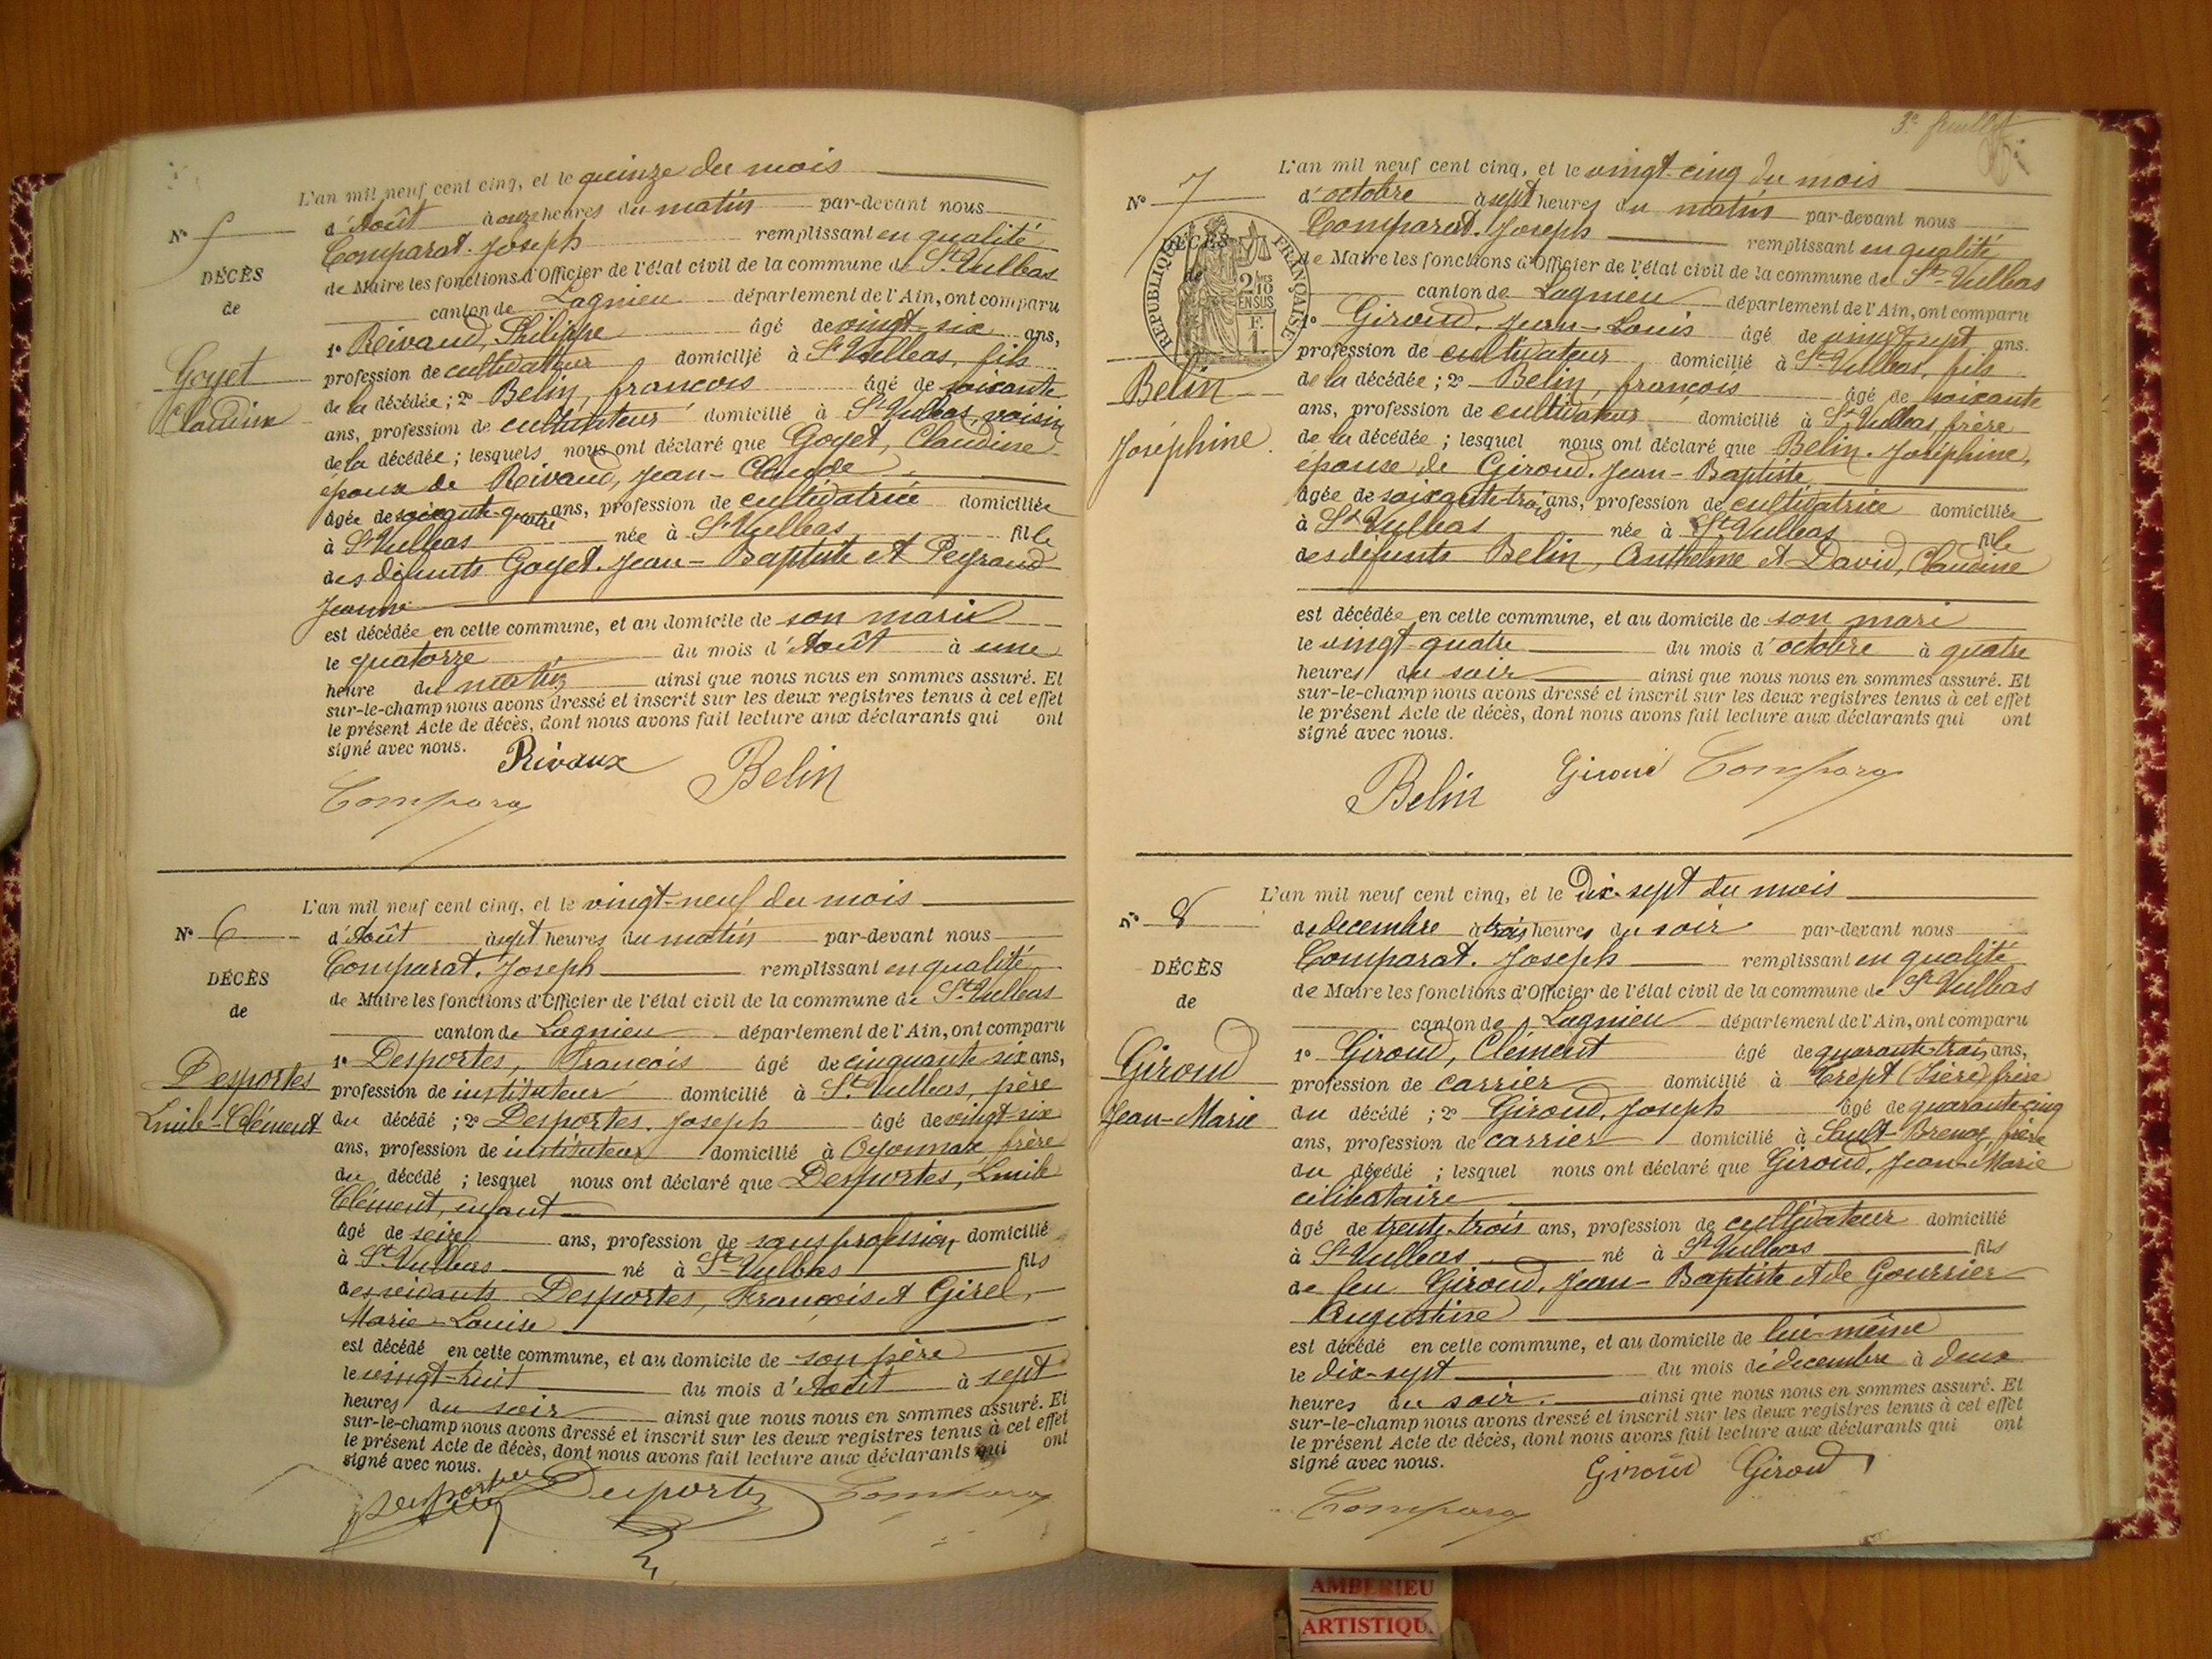 L'an mil neuf cent cinq, et le quinze du mois
N° 5
d'Août à onze heures du matin par-devant nous
Comparat. Joseph remplissant en qualité
DÉCÈS
de Maire les fonctions d'Officier de l'état civil de la commune de St Vulbas
de
canton de Lagnieu département de l'Ain, ont comparu
1° Rivaud, Philippe âgé de vingt-six ans,
Goyet
profession de cultivateur domicilié à St Vulbas, fils
de la décédée ; 2° Belin, françois âgé de soixante
Claudine
ans, profession de cultivateur domicilié à St Vulbas, voisin
de la décédée ; lesquels nous ont déclaré que Goyet, Claudine
épouse de Rivaud, Jean-Claude
âgée de soixante-quatre ans, profession de cultivatrice domiciliée
à St Vulbas née à St Vulbas fille
des défunts Goyet. Jean-Baptiste et Peyraud
Jeanne
est décédée en cette commune, et au domicile de son mari
le quatorze du mois d'Août à une
heure du matin ainsi que nous nous en sommes assuré. Et
sur-le-champ nous avons dressé et inscrit sur les deux registres tenus à cet effet
le présent Acte de décès, dont nous avons fait lecture aux déclarants qui ont
signé avec nous.
Rivaux Belin
Comparat
L'an mil neuf cent cinq, et le vingt-neuf du mois
N° 6
d'Août à sept heures du matin par-devant nous
Comparat. Joseph remplissant en qualité
DÉCÈS
de Maire les fonctions d'Officier de l'état civil de la commune de St Vulbas
de
canton de Lagnieu département de l'Ain, ont comparu
1° Desportes, François âgé de cinquante six ans,
Desportes
profession de instituteur domicilié à St Vulbas, père
Emile-Clément
du décédé ; 2° Desportes. Joseph âgé de vingt-six
ans, profession de instituteur domicilié à Oyonnax frère
du décédé ; lesquel nous ont déclaré que Desportes, Emile
Clément, enfant
âgé de seize ans, profession de sans profession domicilié
à St Vulbas né à St Vulbas fils
des vivants Desportes, François et Girel,
Marie-Louise
est décédé en cette commune, et au domicile de son père
le vingt-huit du mois d'Août à sept
heures du soir ainsi que nous nous en sommes assuré. Et
sur-le-champ nous avons dressé et inscrit sur les deux registres tenus à cet effet
le présent Acte de décès, dont nous avons fait lecture aux déclarants qui ont
signé avec nous.
Desportes Desportes Comparat
3e feuillet
L'an mil neuf cent cinq, et le vingt-cinq du mois
N° 7
d'octobre à sept heures du matin par-devant nous
Comparat. Joseph remplissant en qualité
DÉCÈS
de
RÉPUBLIQUE FRANÇAISE
2/10 EN SUS
F. 1
de Maire les fonctions d'Officier de l'état civil de la commune de St-Vulbas
canton de Lagnieu département de l'Ain, ont comparu
1° Giroud. Jean-Louis âgé de vingt-sept ans.
profession de cultivateur domicilié à St Vulbas, fils
Belin
de la décédée ; 2° Belin, françois âgé de soixante
ans, profession de cultivateur domicilié à St Vulbas, frère
Joséphine.
de la décédée ; lesquel nous ont déclaré que Belin. Joséphine,
épouse de Giroud. Jean-Baptiste
âgée de soixante-trois ans, profession de cultivatrice domiciliée
à St Vulbas née à St Vulbas fille
des défunts Belin, Anthelme et David, Claudine
est décédée en cette commune, et au domicile de son mari
le vingt-quatre du mois d'octobre à quatre
heures du soir ainsi que nous nous en sommes assuré. Et
sur-le-champ nous avons dressé et inscrit sur les deux registres tenus à cet effet
le présent Acte de décès, dont nous avons fait lecture aux déclarants qui ont
signé avec nous.
Belin Giroud Comparat
L'an mil neuf cent cinq, et le Dix-sept du mois
N° 8
de decembre à trois heures du soir par-devant nous
Comparat. Joseph remplissant en qualité
DÉCÈS
de Maire les fonctions d'Officier de l'état civil de la commune de St Vulbas
de
canton de Lagnieu département de l'Ain, ont comparu
Giroud
1° Giroud, Clément âgé de quarante-trois ans,
profession de carrier domicilié à Crept (Isère) frère
Jean-Marie
du décédé ; 2° Giroud. Joseph âgé de quarante-cinq
ans, profession de carrier domicilié à Sault-Brenaz, frère
du décédé ; lesquel nous ont déclaré que Giroud, Jean-Marie
célibataire
âgé de trente-trois ans, profession de cultivateur domicilié
à St Vulbas né à St Vulbas fils
de feu Giroud. Jean-Baptiste et de Gourrier
Augustine
est décédé en cette commune, et au domicile de lui-même
le dix-sept du mois de decembre à deux
heures du soir. ainsi que nous nous en sommes assuré. Et
sur-le-champ nous avons dressé et inscrit sur les deux registres tenus à cet effet
le présent Acte de décès, dont nous avons fait lecture aux déclarants qui ont
signé avec nous.
Giroud Giroud
Comparat
AMBERIEU
ARTISTIQU